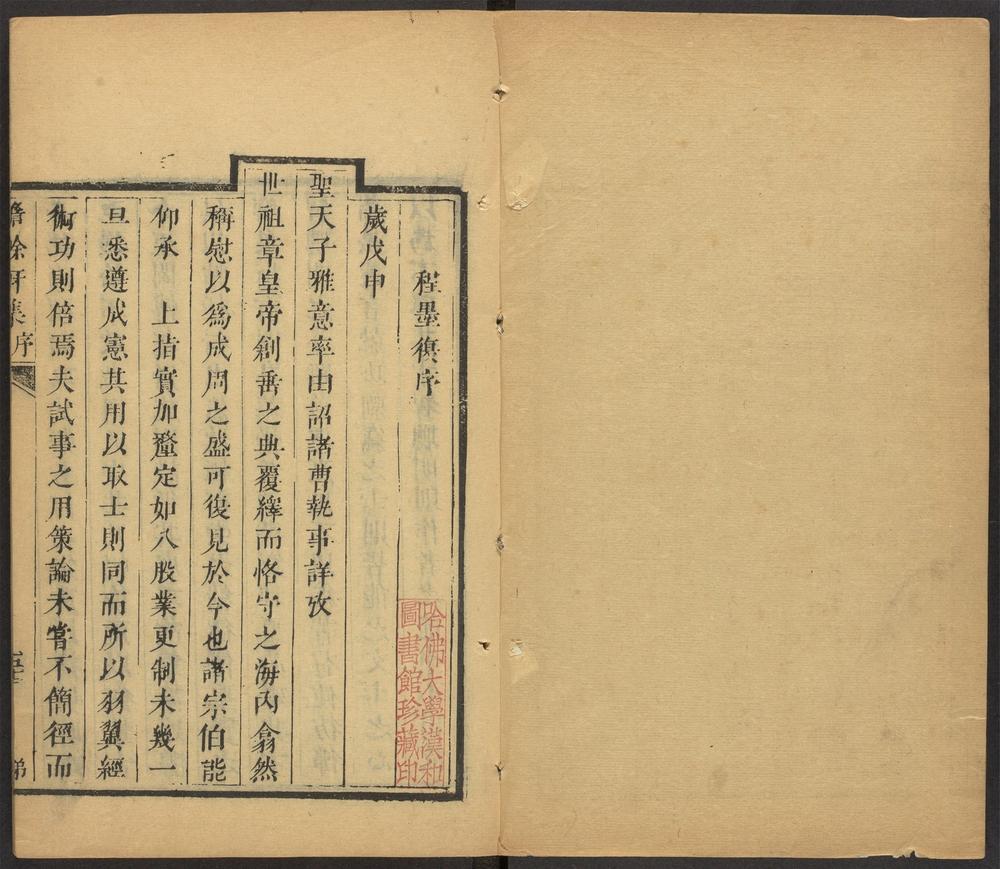 程墨復序
歲戊申
聖天子雅意率由詔諸曹執事詳攷
世祖章皇帝創垂之典覆繹而恪守之海內翕然
稱慰以爲成周之盛可復見於今也諸宗伯能
仰承 上指實加釐定如八股業更制未幾一
旦悉遵成憲其用以取士則同而所以羽翼經
術功則倍焉夫試事之用策論未嘗不簡徑而
餘硏集 序
哈佛大學漢和
圖書館珍藏印